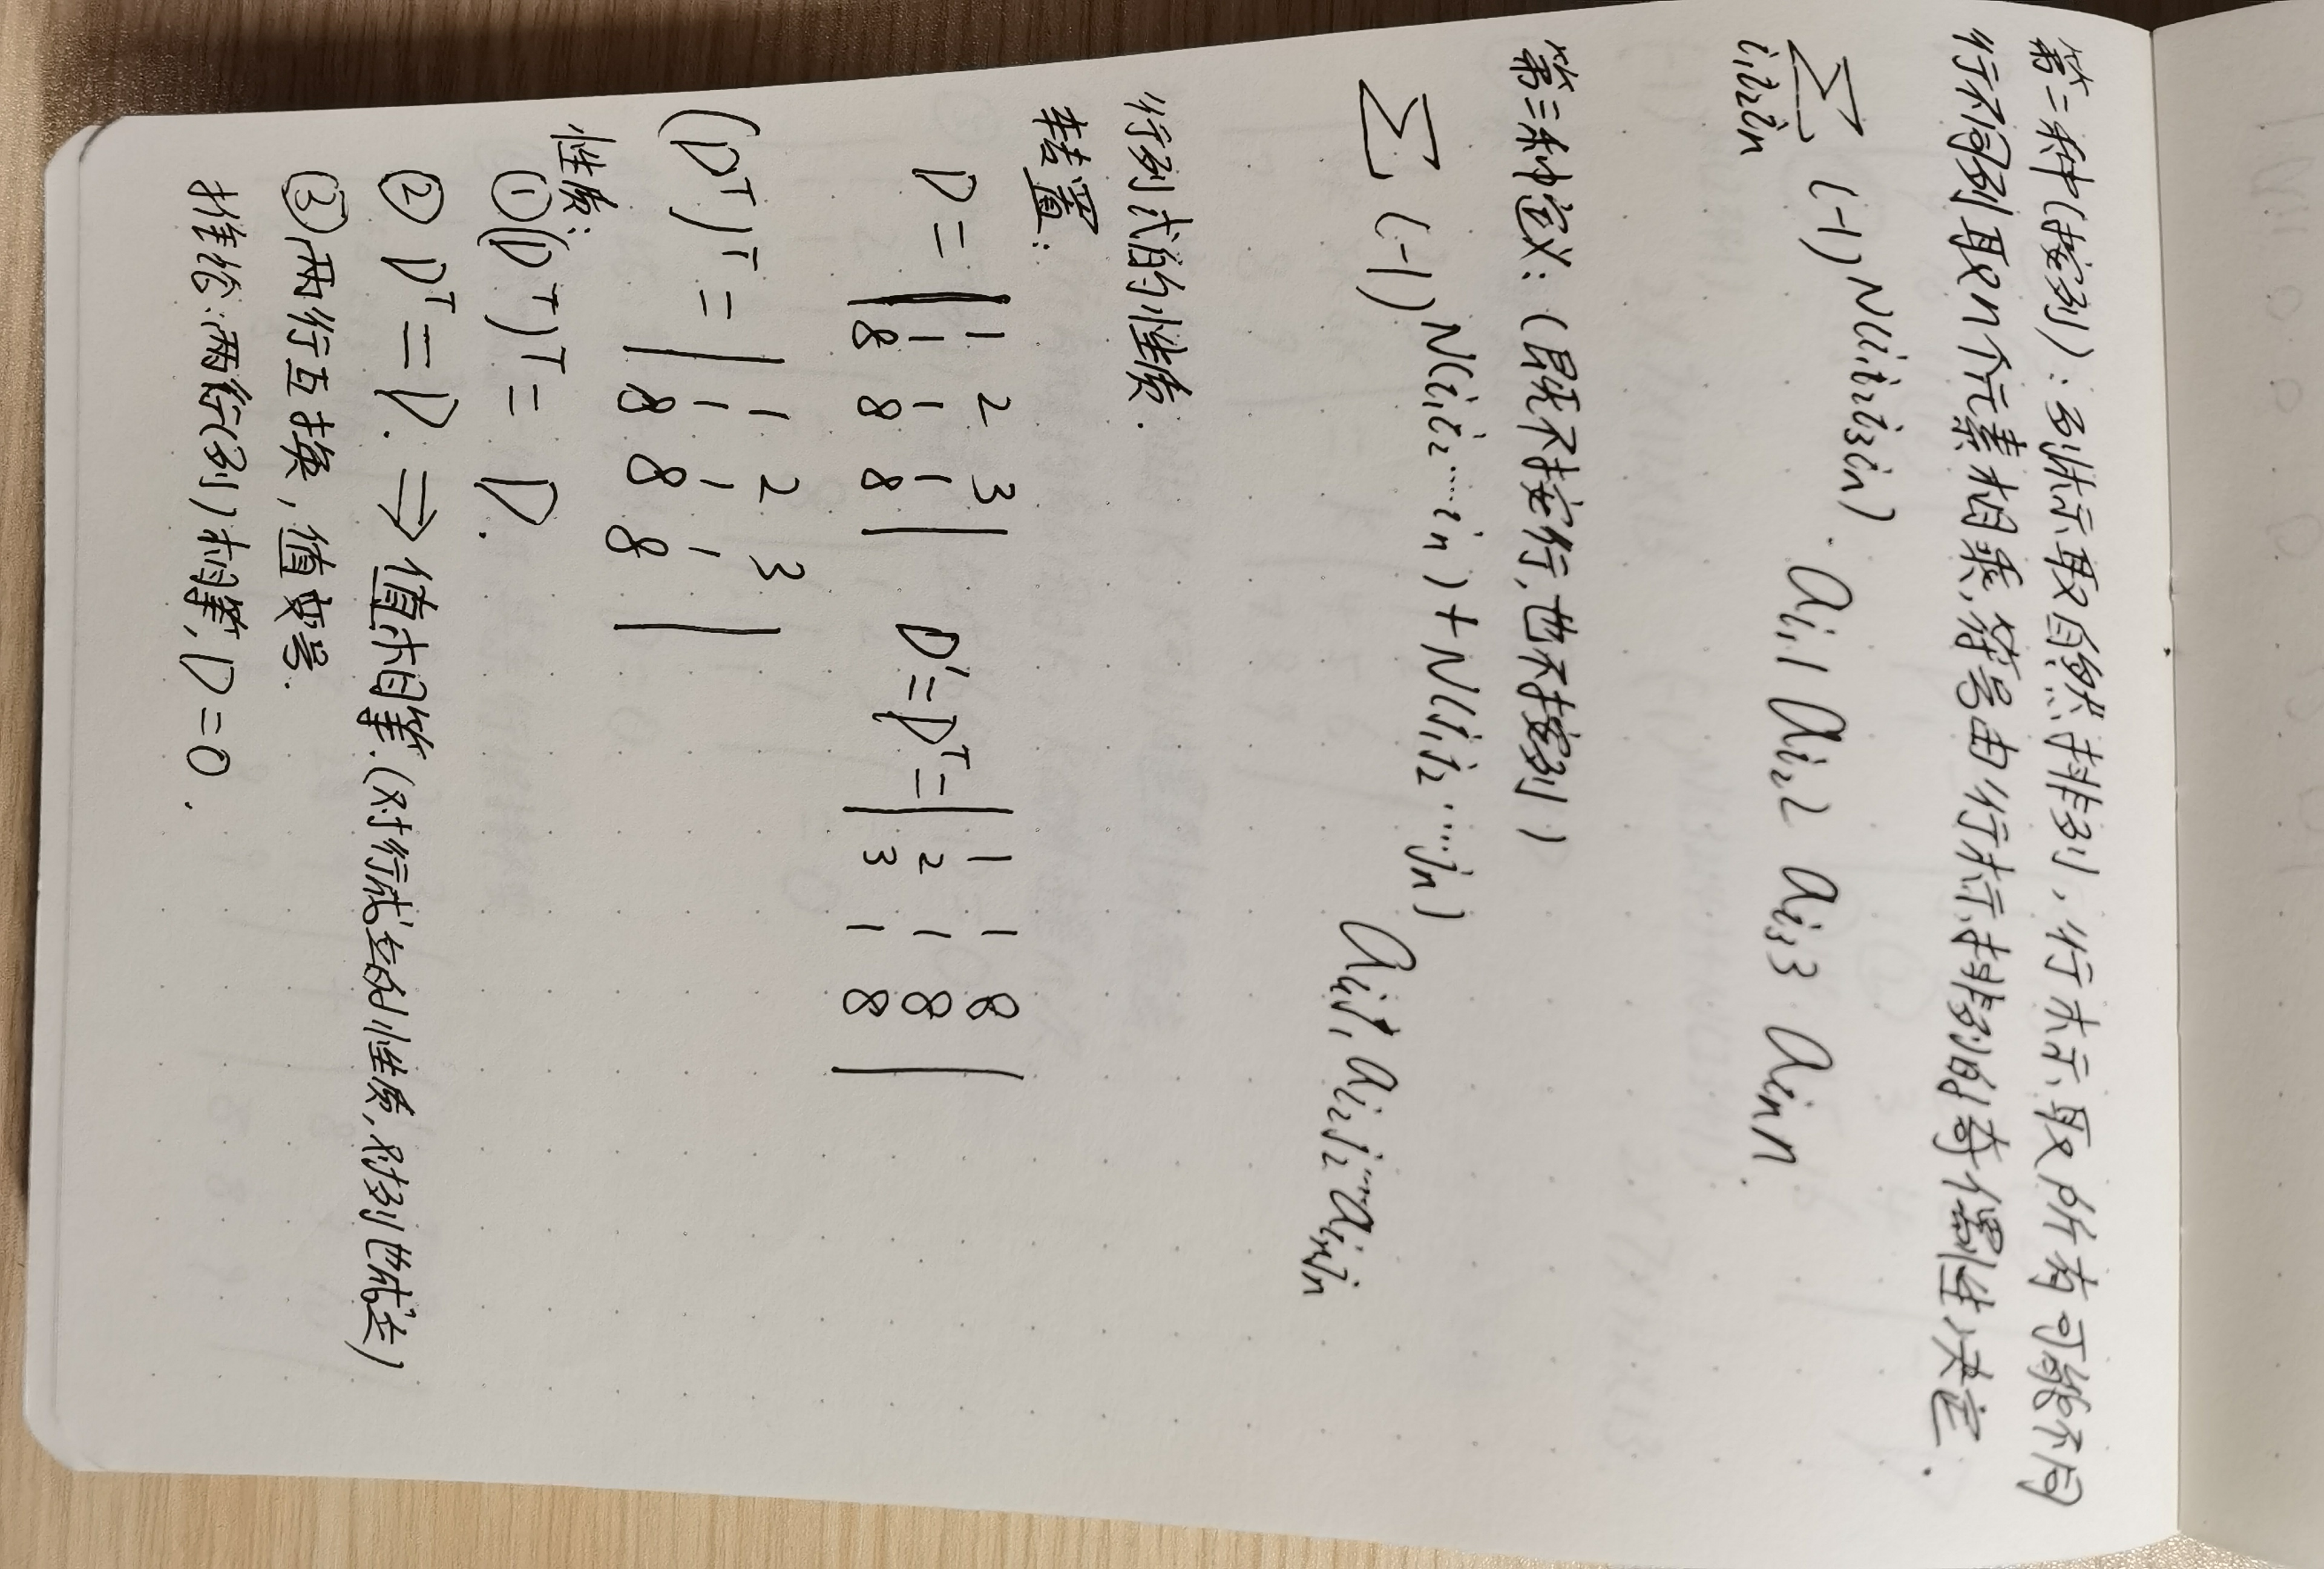 第二种(按列):列标取自然排列,行标取所有可能不同
行不同列取n个元素相乘,符号由行标排列的奇偶性决定.
∑ (-1)^N(i₁i₂i₃in) · ai₁1 ai₂2 ai₃3 ainn.
i₁i₂in
第三种定义:(既不按行,也不按列)
∑ (-1)^N(i₁i₂……in)+N(j₁j₂……jn) ai₁j₁ ai₂j₂…ainjn
行列式的性质.
转置:
D = | 1 2 3 | D'=Dᵀ= | 1 1 8 |
| 1 1 1 | | 2 1 8 |
| 8 8 8 | | 3 1 8 |
(Dᵀ)ᵀ = | 1 2 3 |
| 1 1 1 |
| 8 8 8 |
性质:
①(Dᵀ)ᵀ = D.
② Dᵀ=D. ⇒ 值相等.(对行成立的性质,对列也成立)
③两行互换,值变号.
推论:两行(列)相等,D=0.